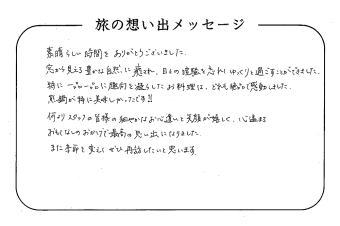 旅の想い出メッセージ
素晴らしい時間を ありがとうございました。
窓から見える豊かな自然に癒され、日々の喧騒を忘れ ゆっくりと過ごすことができました。
特に 一品一品に趣向を凝らしたお料理は、どれも絶品で感動しました。
鍋が特に美味しかったです!!
何よりスタッフの皆様の細やかなお心遣いと笑顔が嬉しく、心温まる
おもてなしのおかげで最高の思い出になりました。
また季節を変えて ぜひ再訪したいと思います。